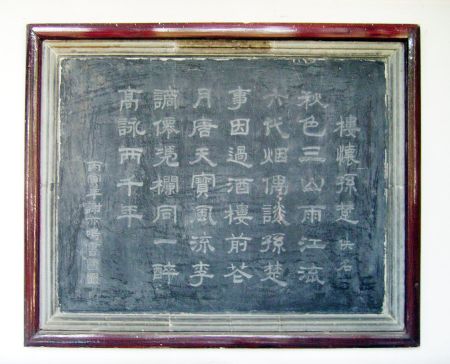 樓懷孫楚 佚名
秋色三山雨江流
六代烟偶談孫楚
事因過酒樓前花
月唐天寶風流李
謫僊凴欄同一醉
高詠兩千年